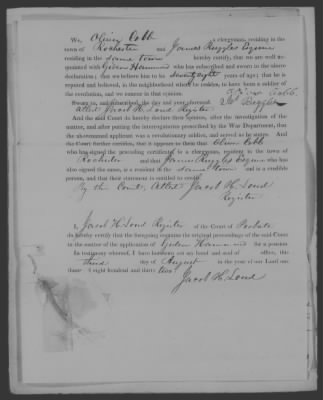 We, Oliver Cobb a clergyman, residing in the
town of Rochester and James Ruggles Esquire
residing in the same town hereby certify, that we are well ac-
quainted with Gideon Hammond who has subscribed and sworn to the above
declaration; that we believe him to be seventy eight years of age; that he is
reputed and believed, in the neighborhood where he resides, to have been a soldier of
the revolution, and we concur in that opinion.
Oliver Cobb
Sworn to, and subscribed, the day and year aforesaid.
Attest Jacob H. Loud Register
And the said Court do hereby declare their opinion, after the investigation of the
matter, and after putting the interrogatories prescribed by the War Department, that
the abovenamed applicant was a revolutionary soldier, and served as he states. And
the Court further certifies, that it appears to them that Oliver Cobb
who has signed the preceding certificate is a clergyman, resident in the town of
Rochester and that James Ruggles Esquire who has
also signed the same, is a resident in the same town and is a credible
person, and that their statement is entitled to credit.
By the Court, Attest Jacob H. Loud
Register
I, Jacob H. Loud Register of the Court of Probate
do hereby certify that the foregoing contains the original proceedings of the said Court
in the matter of the application of Gideon Hammond for a pension.
In testimony whereof, I have hereunto set my hand and seal of office, this
third day of August in the year of our Lord one
thousand eight hundred and thirty two
Jacob H. Loud